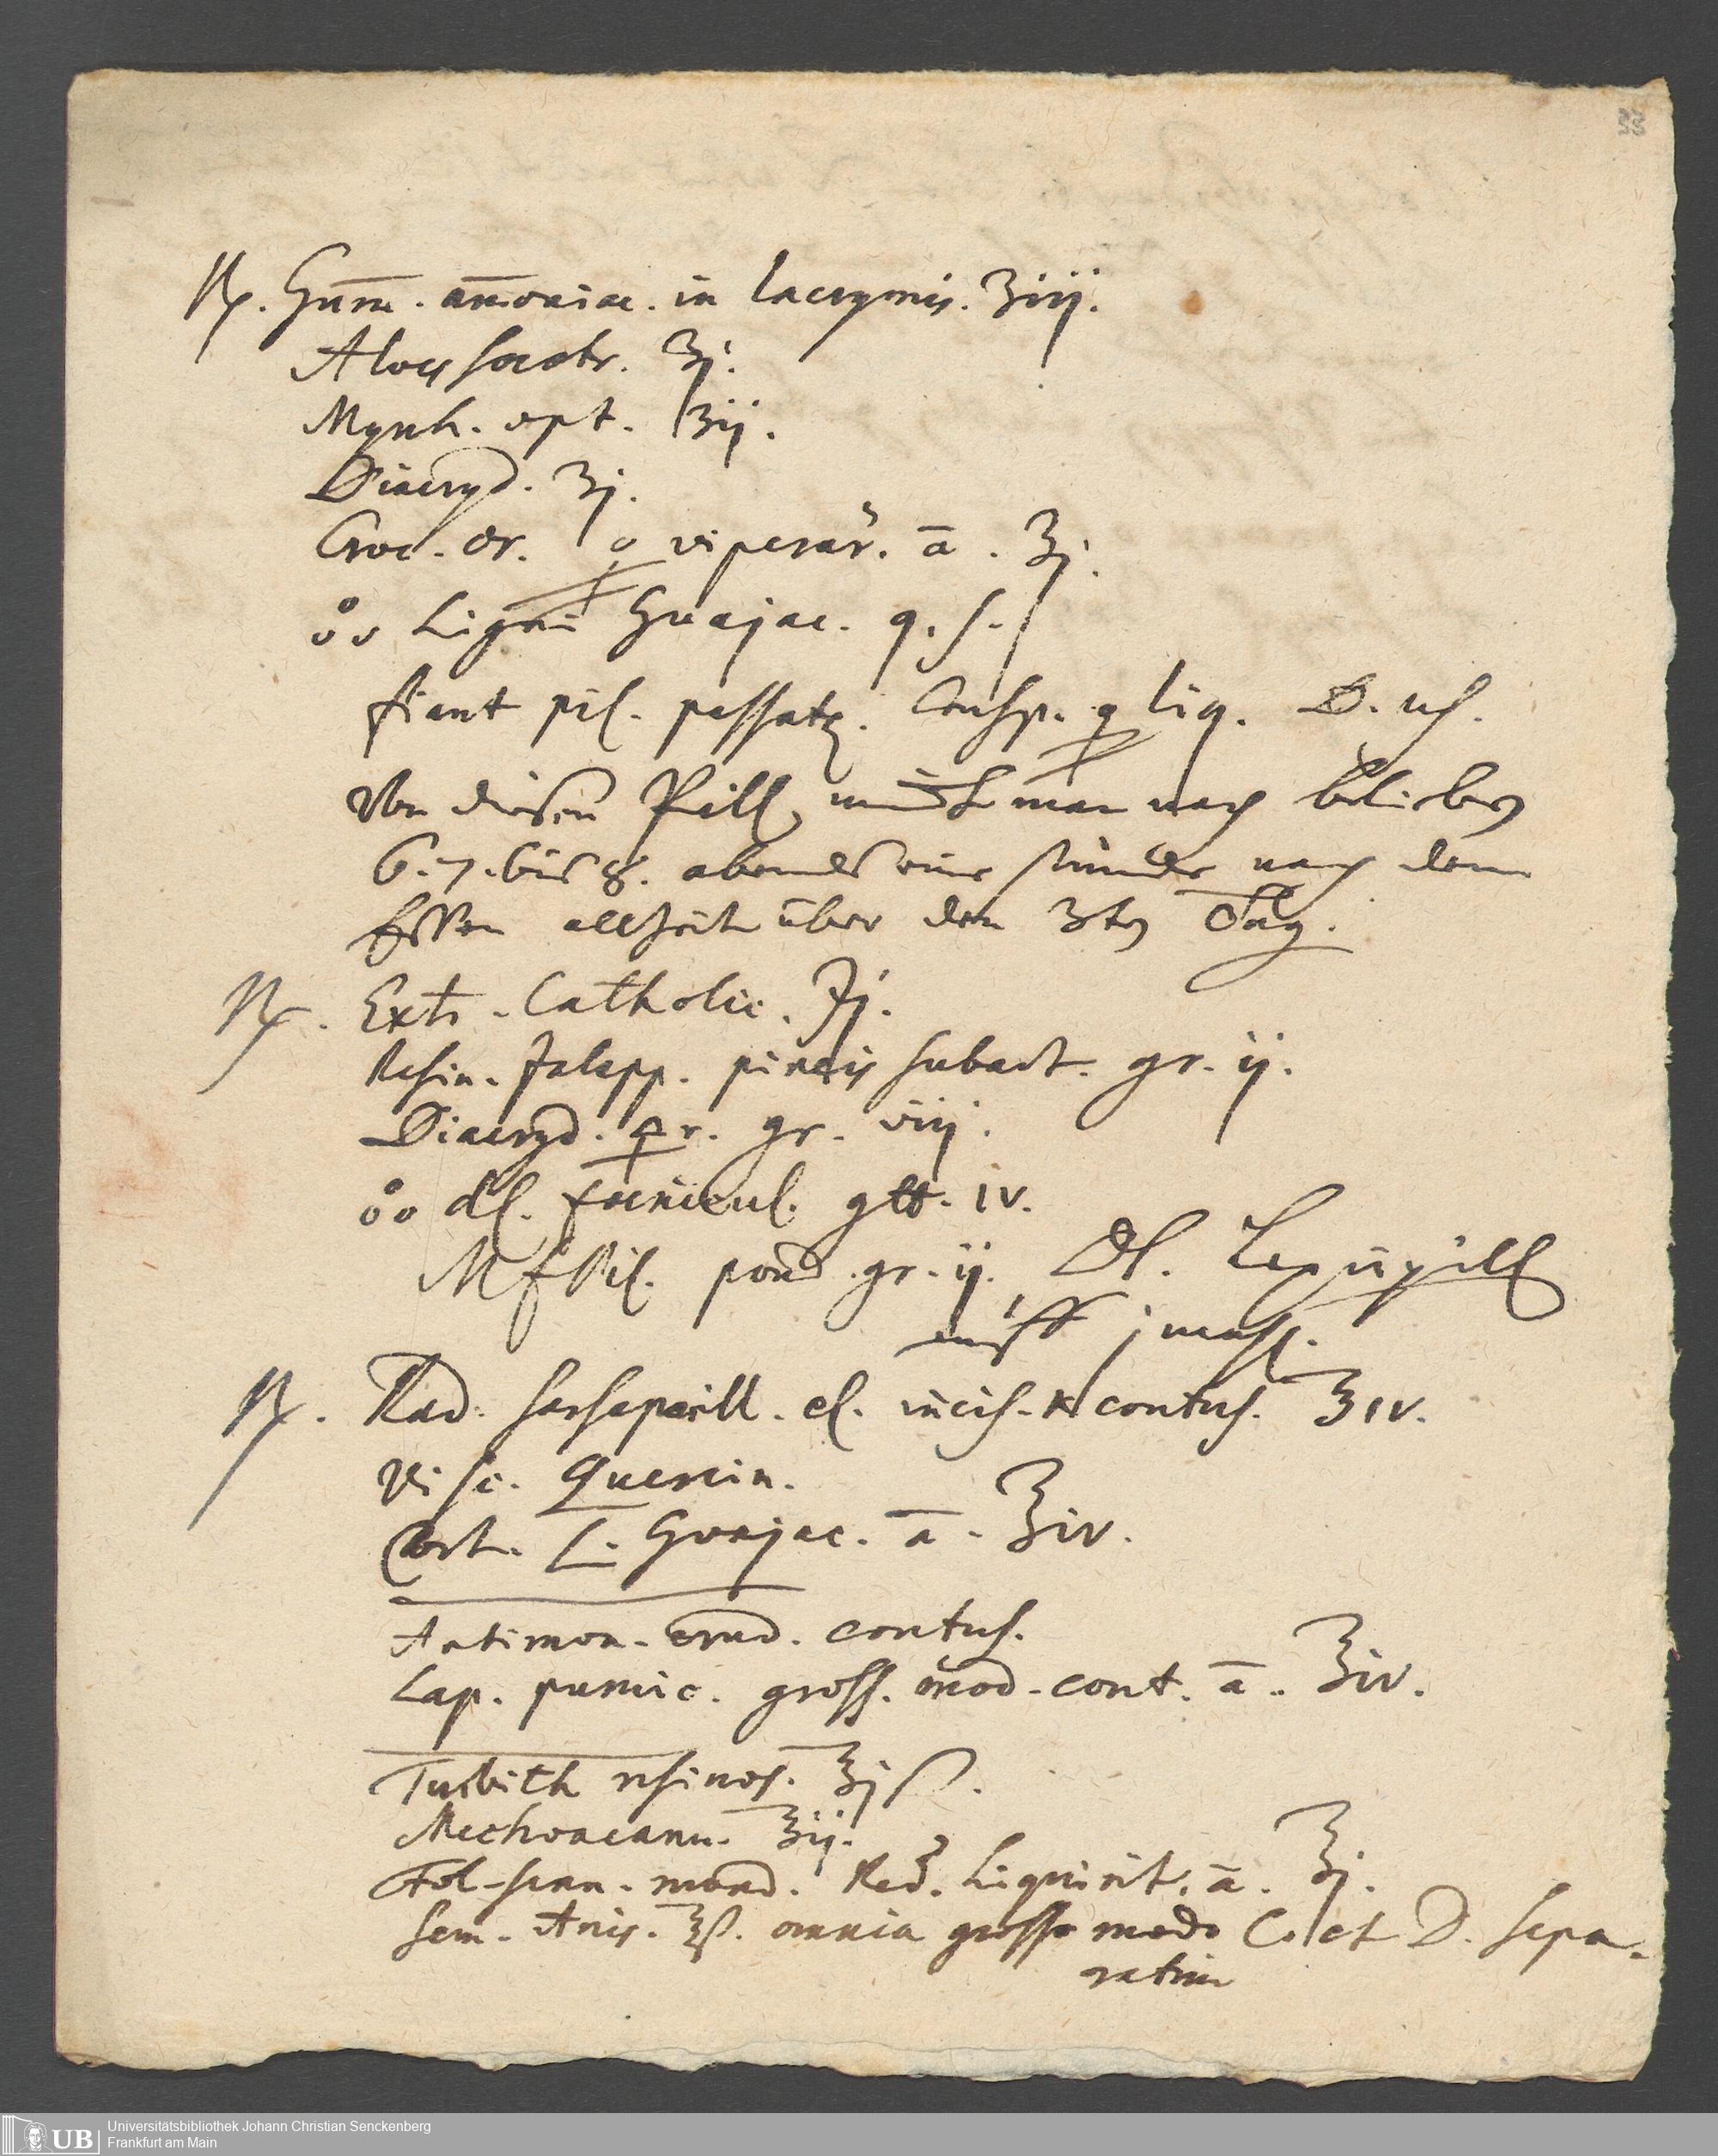 33
℞. Gum̅. am̅oniac. in lacrymis. ʒiij.
Aloes socotr. ʒj.
Myrrh. opt. ʒij.
Diacryd. ʒj.
Croc. or. viperar̃. a̅. ʒj.
Ligni Guajac. q. s.
fiant pil. Consp. liq. D. us.
Von diesen Pill nimbt man nach belieben
6. 7. bis 8. abends eine stunde nach dem
Essen allzeit über den 3ten Tag.
℞. Extr. Catholic. ℈j.
Resin. Jalapp. pineis subact. gr. ij.
Diacryd. gr. viij.
dl. foenicul. gtt. iv.
M f Pil. pond. gr. ij. DS.
auff j mahl.
℞. Rad. sarsaparill. el. incis. & contus. ℥iv.
Visc. Quercin.
Cort. L. Guajac. a̅. ℥iv.
Antimon. crud. contus.
Lap. pumic. gross. mod. cont. a̅. ℥iv.
Turbith resinos. ℥jß.
Mechoacann. ʒij.
Fol. senn. mund. Rad. Liquirit. a̅. ℥j.
Sem. Anis. ℥ß. omnia grosso modo C. et D. sepa-
ratim
UB Universitätsbibliothek Johann Christian Senckenberg
Frankfurt am Main